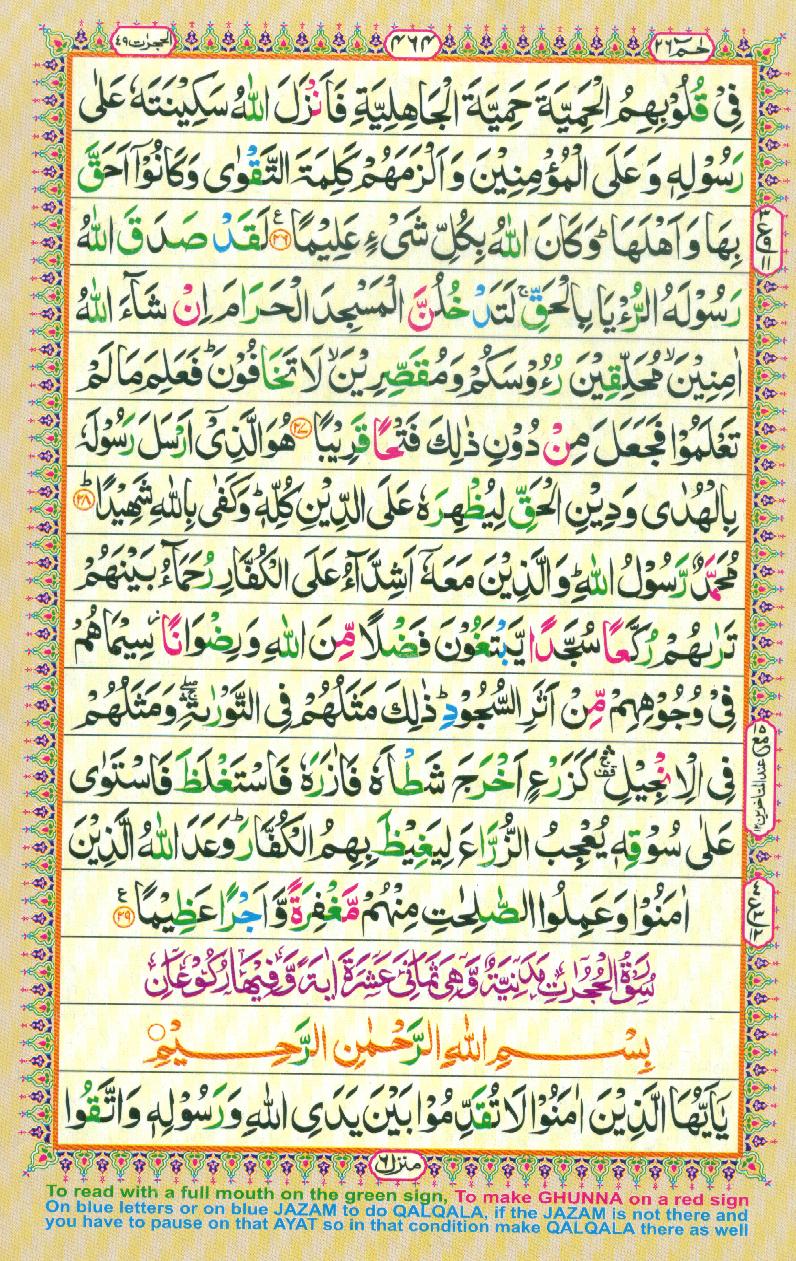 الحجرٰت ٤٩
٤٦٤
حٰمٓ ٢٦
فِیْ قُلُوْبِهِمُ الْحَمِیَّةَ حَمِیَّةَ الْجَاهِلِیَّةِ فَاَنْزَلَ اللّٰهُ سَكِیْنَتَهٗ عَلٰی
رَسُوْلِهٖ وَعَلَی الْمُؤْمِنِیْنَ وَاَلْزَمَهُمْ كَلِمَةَ التَّقْوٰی وَكَانُوْۤا اَحَقَّ
بِهَا وَاَهْلَهَا ؕ وَكَانَ اللّٰهُ بِكُلِّ شَیْءٍ عَلِیْمًا ﴿٢٦﴾ ع لَقَدْ صَدَقَ اللّٰهُ
رَسُوْلَهُ الرُّءْیَا بِالْحَقِّ ۚ لَتَدْخُلُنَّ الْمَسْجِدَ الْحَرَامَ اِنْ شَآءَ اللّٰهُ
اٰمِنِیْنَ ۙ مُحَلِّقِیْنَ رُءُوْسَكُمْ وَمُقَصِّرِیْنَ ۙ لَا تَخَافُوْنَ ؕ فَعَلِمَ مَا لَمْ
تَعْلَمُوْا فَجَعَلَ مِنْ دُوْنِ ذٰلِكَ فَتْحًا قَرِیْبًا ﴿٢٧﴾ هُوَ الَّذِیْۤ اَرْسَلَ رَسُوْلَهٗ
بِالْهُدٰی وَدِیْنِ الْحَقِّ لِیُظْهِرَهٗ عَلَی الدِّیْنِ كُلِّهٖ ؕ وَكَفٰی بِاللّٰهِ شَهِیْدًا ؕ ﴿٢٨﴾
مُحَمَّدٌ رَّسُوْلُ اللّٰهِ ؕ وَالَّذِیْنَ مَعَهٗۤ اَشِدَّآءُ عَلَی الْكُفَّارِ رُحَمَآءُ بَیْنَهُمْ
تَرٰىهُمْ رُكَّعًا سُجَّدًا یَّبْتَغُوْنَ فَضْلًا مِّنَ اللّٰهِ وَرِضْوَانًا ؗ سِیْمَاهُمْ
فِیْ وُجُوْهِهِمْ مِّنْ اَثَرِ السُّجُوْدِ ؕ ذٰلِكَ مَثَلُهُمْ فِی التَّوْرٰىةِ ۛۖۚ وَمَثَلُهُمْ
فِی الْاِنْجِیْلِ ۛ۫ۚ كَزَرْعٍ اَخْرَجَ شَطْـَٔهٗ فَاٰزَرَهٗ فَاسْتَغْلَظَ فَاسْتَوٰی
عَلٰی سُوْقِهٖ یُعْجِبُ الزُّرَّاعَ لِیَغِیْظَ بِهِمُ الْكُفَّارَ ؕ وَعَدَ اللّٰهُ الَّذِیْنَ
اٰمَنُوْا وَعَمِلُوا الصّٰلِحٰتِ مِنْهُمْ مَّغْفِرَةً وَّاَجْرًا عَظِیْمًا ﴿٢٩﴾ ع
سُوْرَةُ الْحُجُرٰتِ مَدَنِیَّةٌ وَّهِیَ ثَمَانِیَ عَشَرَةَ اٰیَةً وَّفِیْهَا رُكُوْعَانِ
بِسْمِ اللّٰهِ الرَّحْمٰنِ الرَّحِیْمِ
یٰۤاَیُّهَا الَّذِیْنَ اٰمَنُوْا لَا تُقَدِّمُوْا بَیْنَ یَدَیِ اللّٰهِ وَرَسُوْلِهٖ وَاتَّقُوا
منزل ٦
To read with a full mouth on the green sign, To make GHUNNA on a red sign
On blue letters or on blue JAZAM to do QALQALA, if the JAZAM is not there and
you have to pause on that AYAT so in that condition make QALQALA there as well